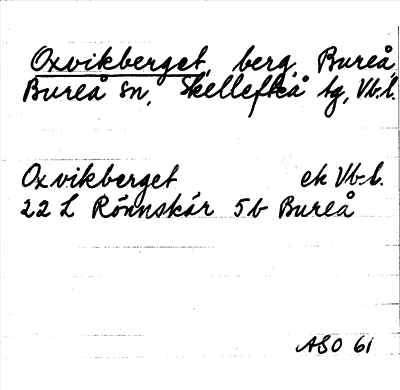 Oxvikberget, berg, Bureå,
Bureå sn, Skellefteå tg, Vb.l.
Oxvikberget ek Vb.l.
22 L Rönnskär 5b Bureå
ASO 61